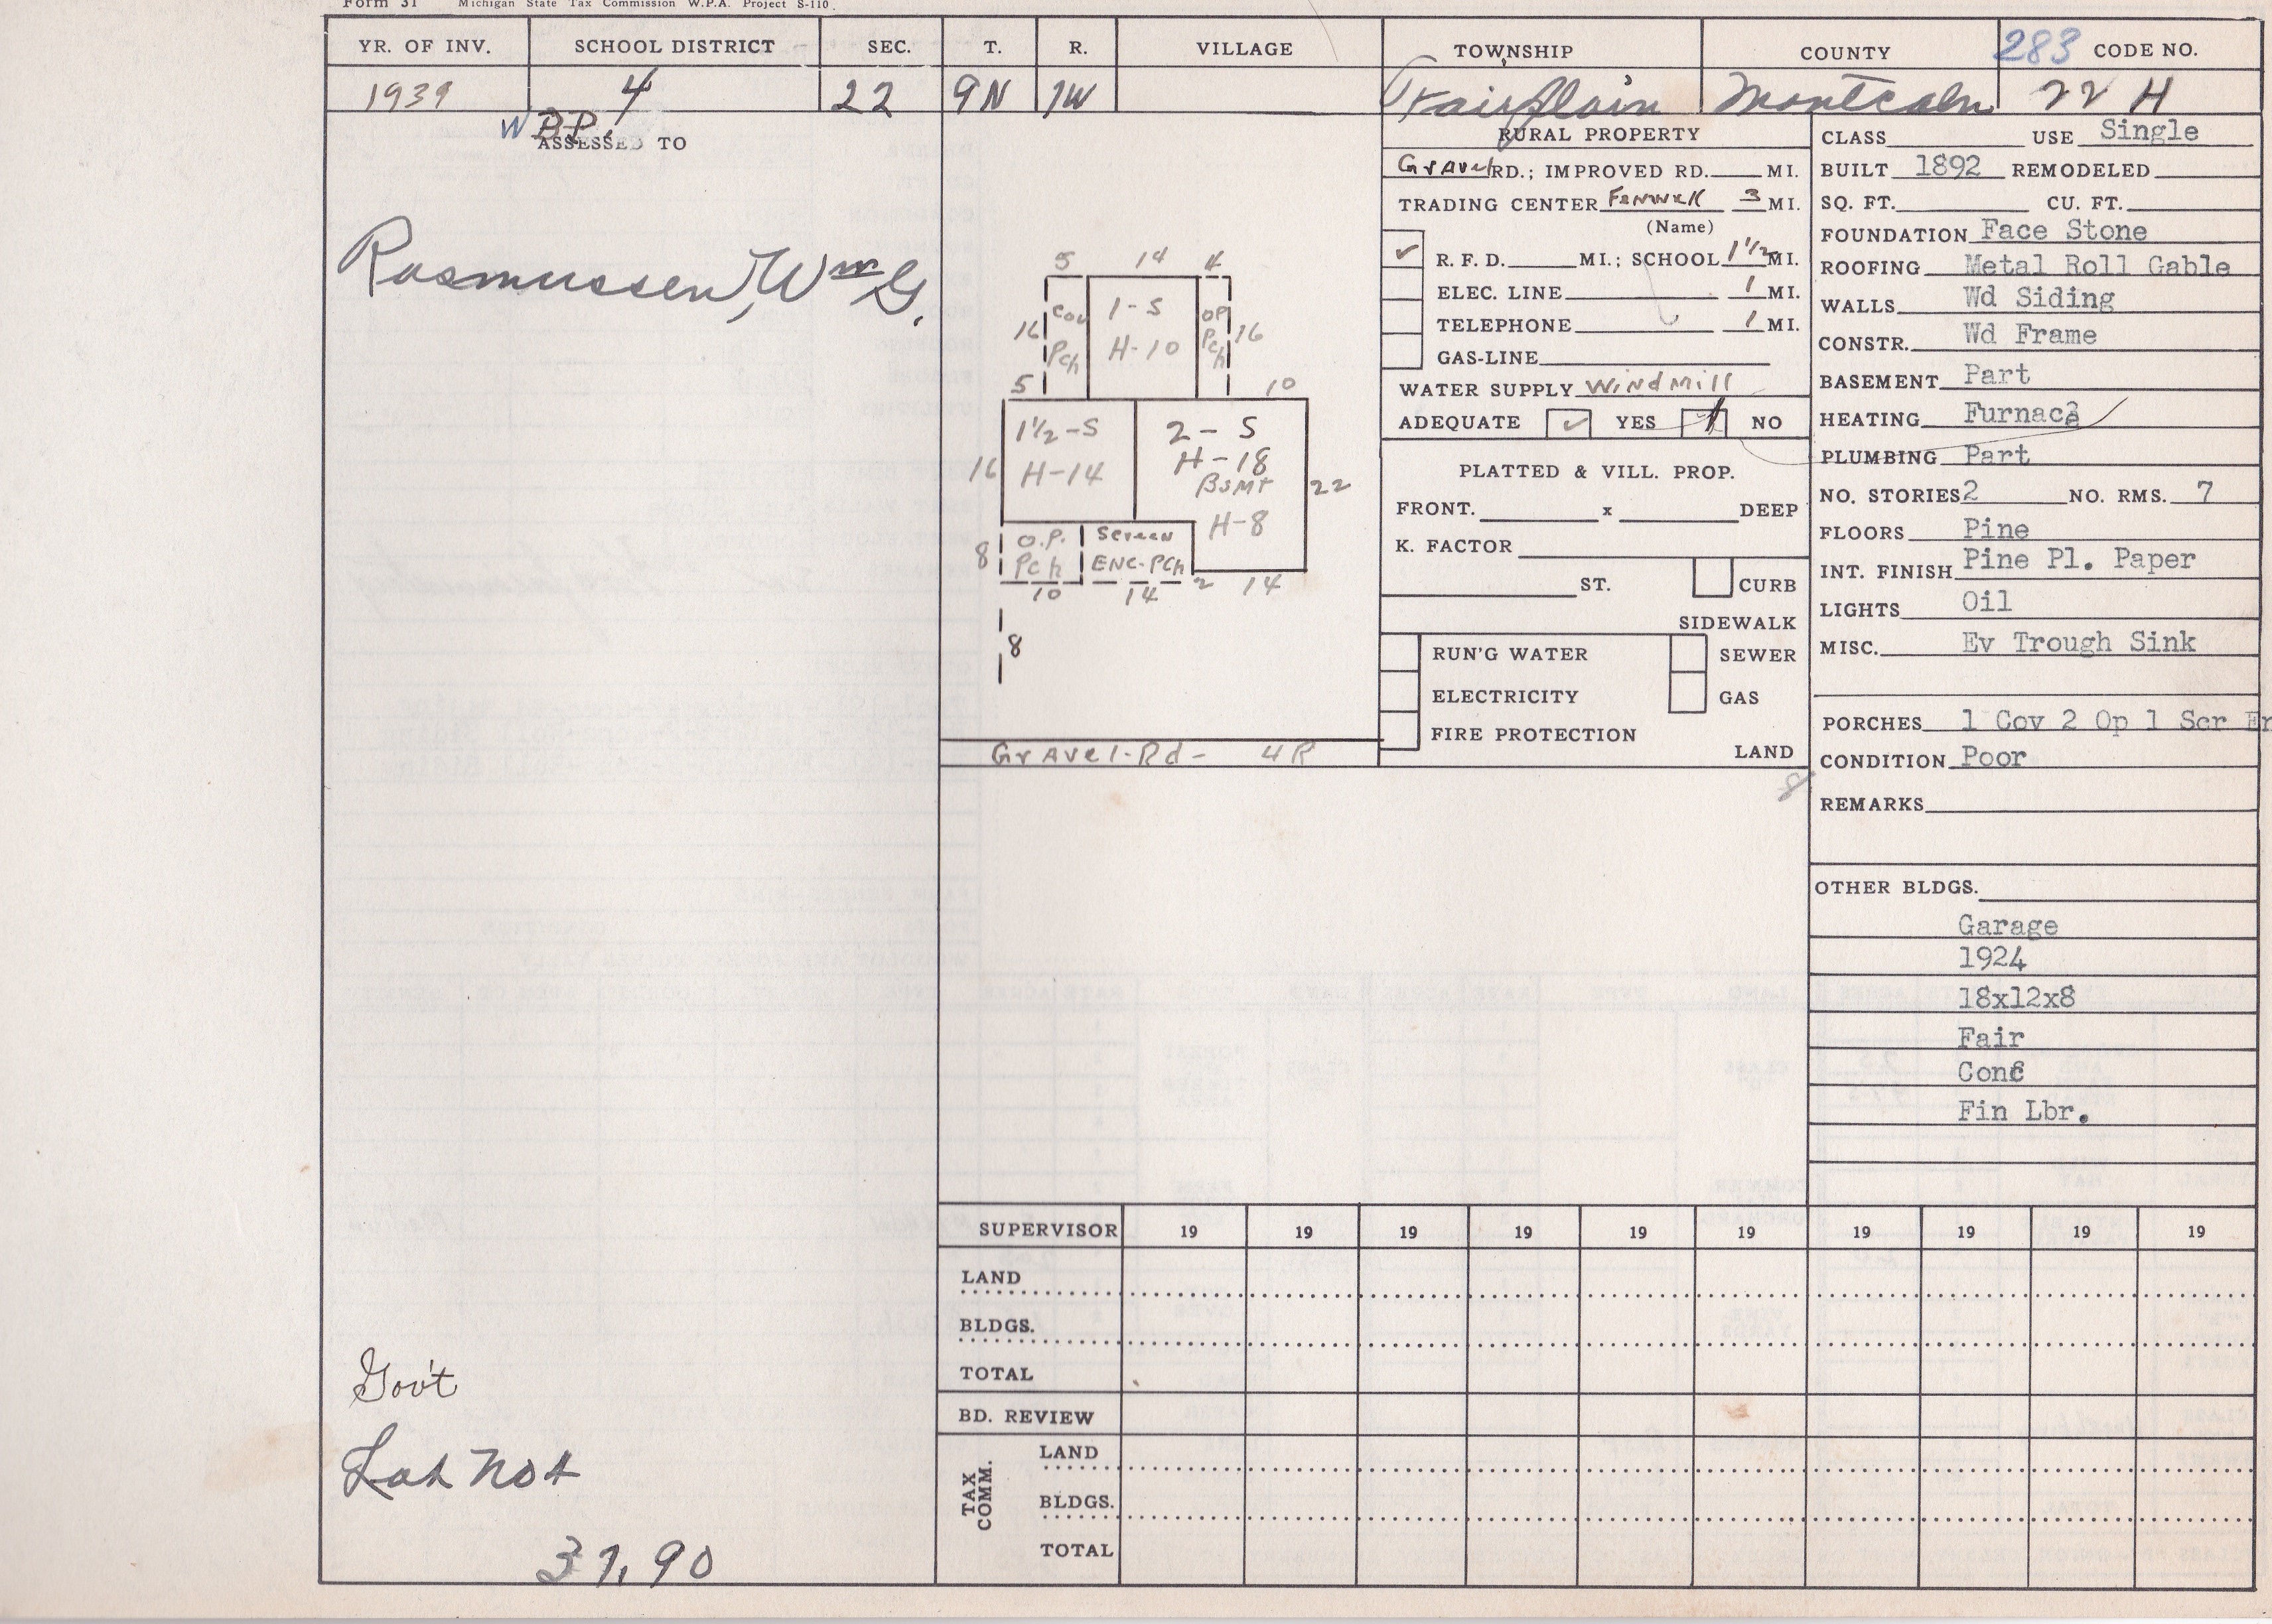 Form 31 Michigan State Tax Commission W.P.A. Project S-110.
YR. OF INV. SCHOOL DISTRICT SEC. T. R. VILLAGE TOWNSHIP COUNTY 283 CODE NO.
1939 4 22 9N 7W Fairplain Montcalm 22 H
W BP.
ASSESSED TO
Rasmussen, Wm G.
Gov't
Lot No 4
37.90
5 14 4
16 Cov Pch 1-S H-10 OP Pch 16
5 10
16 1½-S H-14 2-S H-18 BSMT H-8 22
8 O.P. Pch Screen ENC-PCh
10 14 2 14
8
Gravel-Rd- 4R
RURAL PROPERTY
Gravel RD.; IMPROVED RD. MI.
TRADING CENTER Fenwick 3 MI.
(Name)
✓ R. F. D. MI.; SCHOOL 1½ MI.
ELEC. LINE 1 MI.
TELEPHONE 1 MI.
GAS-LINE
WATER SUPPLY Windmill
ADEQUATE ✓ YES NO
PLATTED & VILL. PROP.
FRONT. x DEEP
K. FACTOR
ST. CURB
SIDEWALK
RUN'G WATER SEWER
ELECTRICITY GAS
FIRE PROTECTION
LAND
8
CLASS USE Single
BUILT 1892 REMODELED
SQ. FT. CU. FT.
FOUNDATION Face Stone
ROOFING Metal Roll Gable
WALLS Wd Siding
CONSTR. Wd Frame
BASEMENT Part
HEATING Furnace
PLUMBING Part
NO. STORIES 2 NO. RMS. 7
FLOORS Pine
INT. FINISH Pine Pl. Paper
LIGHTS Oil
MISC. Ev Trough Sink
PORCHES 1 Cov 2 Op 1 Scr En
CONDITION Poor
REMARKS
OTHER BLDGS.
Garage
1924
18x12x8
Fair
Conc
Fin Lbr.
SUPERVISOR 19 19 19 19 19 19 19 19 19 19
LAND
BLDGS.
TOTAL
BD. REVIEW
TAX COMM.
LAND
BLDGS.
TOTAL